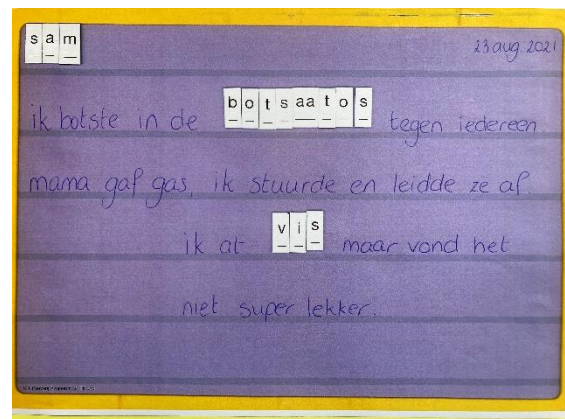 sam 23 aug. 2021
ik botste in de botsaatos tegen iedereen
mama gaf gas, ik stuurde en leidde ze af
ik at vis maar vond het
niet super lekker.